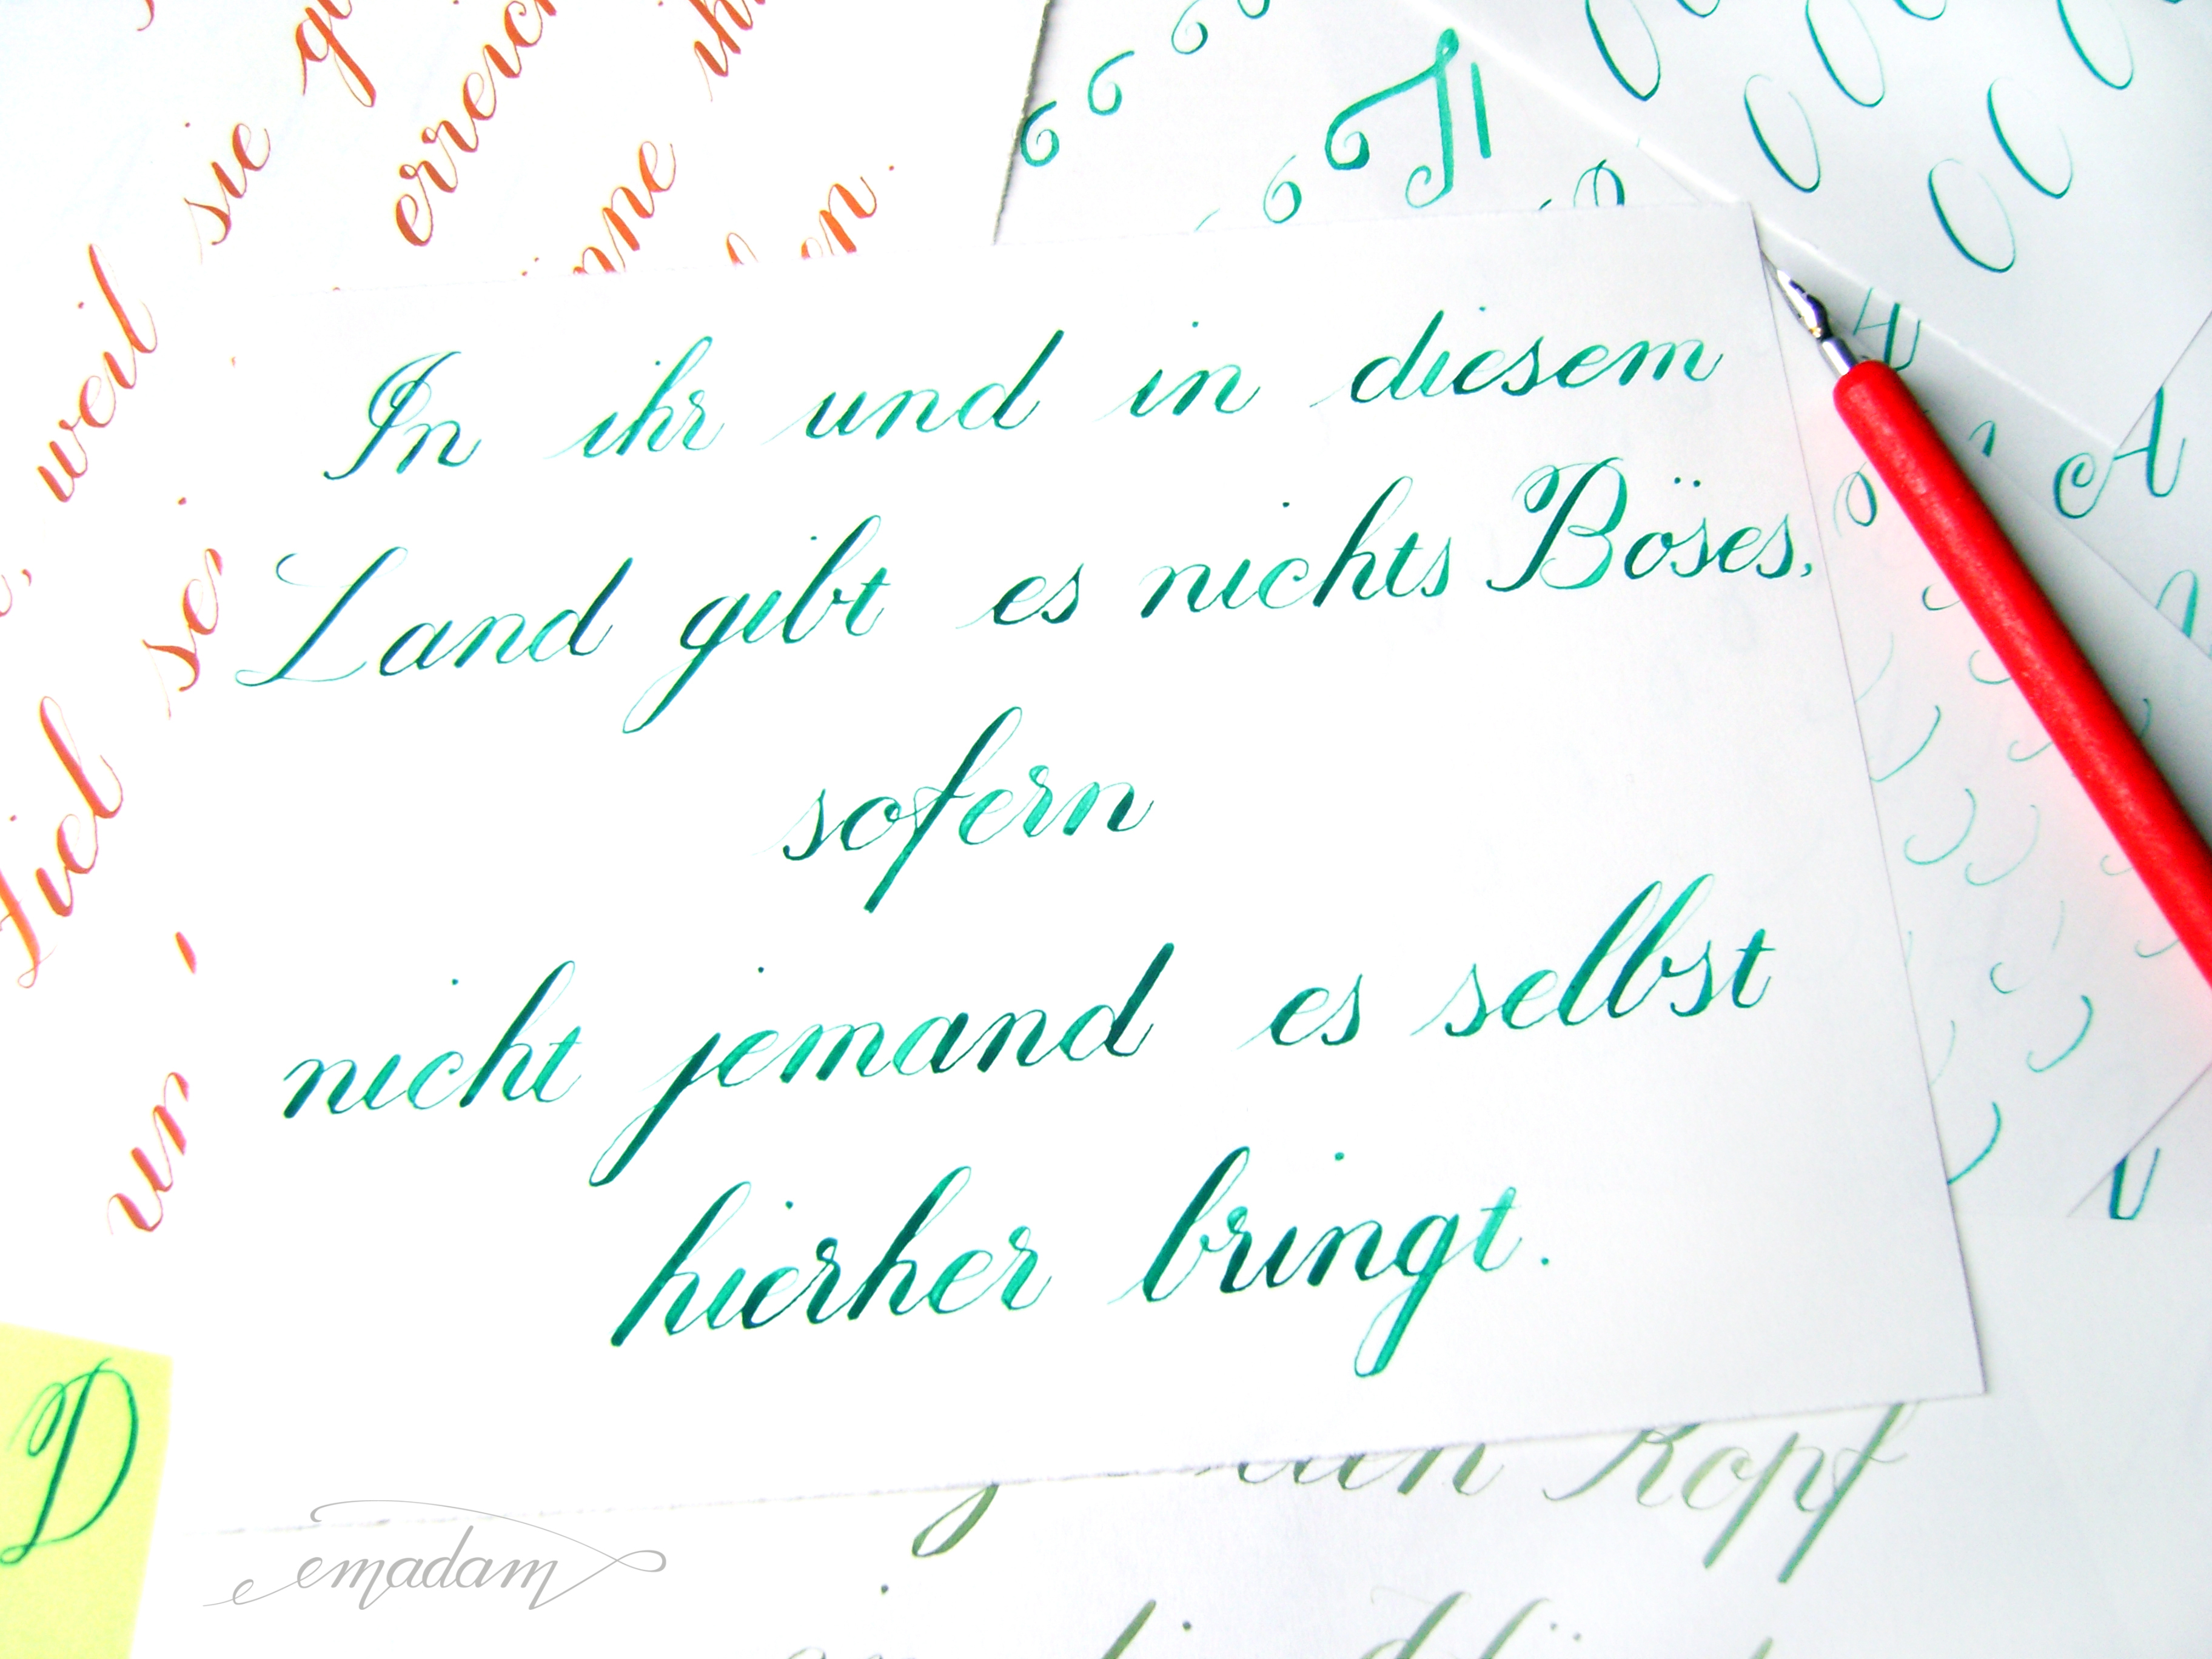 sie
erreich
weil
In ihr und in diesem
Land gibt es nichts Böses,
sofern
nicht jemand es selbst
hierher bringt.
A
D
Kopf
emadam